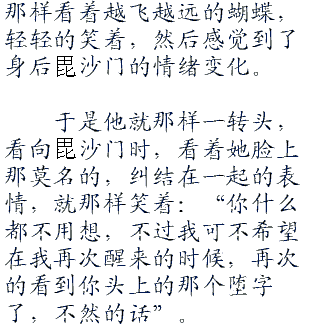 那样看着越飞越远的蝴蝶，
轻轻的笑着，然后感觉到了
身后毘沙门的情绪变化。
于是他就那样一转头，
看向毘沙门时，看着她脸上
那莫名的，纠结在一起的表
情，就那样笑着：“你什么
都不用想，不过我可不希望
在我再次醒来的时候，再次
的看到你头上的那个堕字
了，不然的话”。